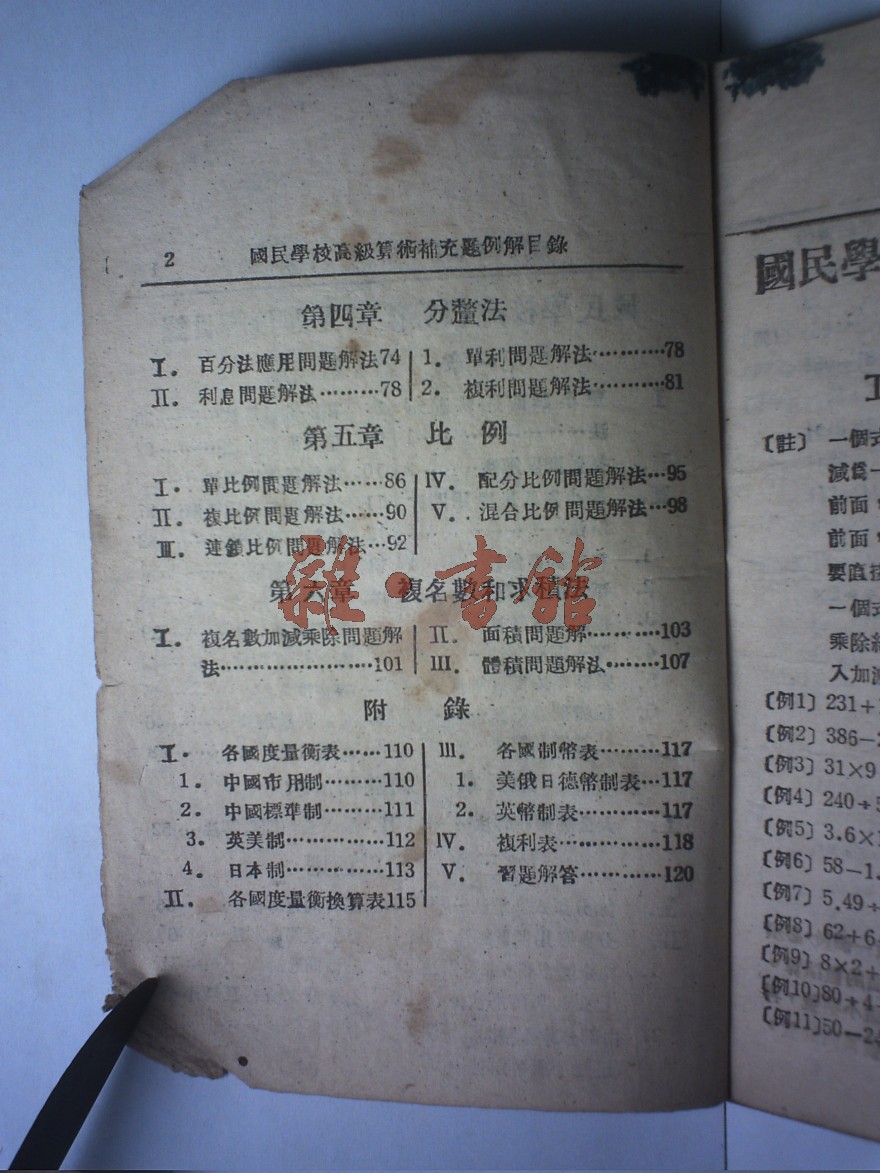 2 國民學校高級算術補充題例解目錄
第四章 分釐法
I. 百分法應用問題解法74
II. 利息問題解法………78
1. 單利問題解法…………78
2. 複利問題解法…………81
第五章 比例
I. 單比例問題解法……86
II. 複比例問題解法……90
III. 連鎖比例問題解法…92
IV. 配分比例問題解法…95
V. 混合比例問題解法…98
第六章 複名數和求積法
I. 複名數加減乘除問題解
法………………101
II. 面積問題解…………103
III. 體積問題解法………107
附錄
I. 各國度量衡表……110
1. 中國市用制………110
2. 中國標準制………111
3. 英美制……………112
4. 日本制……………113
II. 各國度量衡換算表115
III. 各國制幣表………117
1. 美俄日德幣制表…117
2. 英幣制表…………117
IV. 複利表……………118
V. 習題解答…………120
雜·書館
國民學
〔註〕 一個式
減爲一
前面
前面
要直接
一個式
乘除
入加減
〔例1〕 231+
〔例2〕 386-
〔例3〕 31×9
〔例4〕 240÷
〔例5〕 3.6×
〔例6〕 58-1.
〔例7〕 5.49÷
〔例8〕 62+6
〔例9〕 8×2+
〔例10〕80÷4
〔例11〕50-24